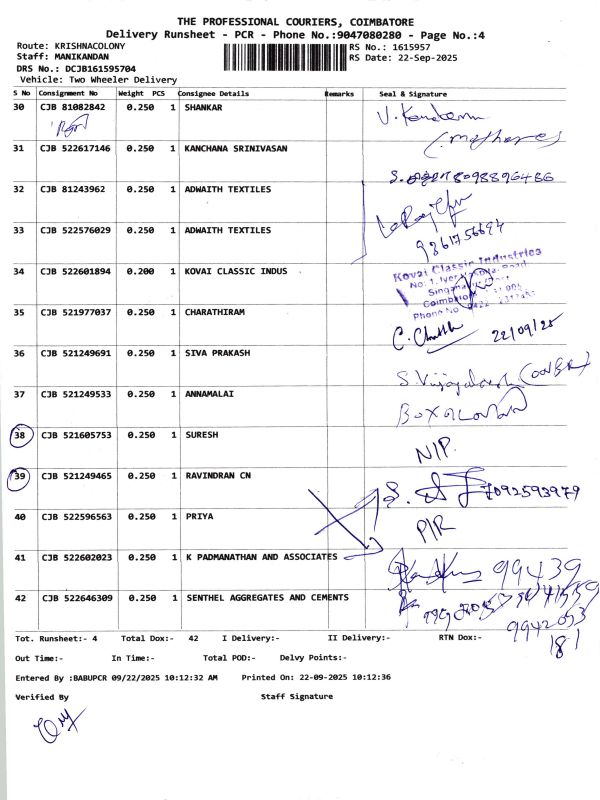 THE PROFESSIONAL COURIERS, COIMBATORE
Delivery Runsheet - PCR - Phone No.:9047080280 - Page No.:4
Route: KRISHNACOLONY RS No.: 1615957
Staff: MANIKANDAN RS Date: 22-Sep-2025
DRS No.: DCJB161595704
Vehicle: Two Wheeler Delivery
S No Consignment No Weight PCS Consignee Details Remarks Seal & Signature
30 CJB 81082842 0.250 1 SHANKAR
31 CJB 522617146 0.250 1 KANCHANA SRINIVASAN
8098896486
32 CJB 81243962 0.250 1 ADWAITH TEXTILES
33 CJB 522576029 0.250 1 ADWAITH TEXTILES
9361756694
34 CJB 522601894 0.200 1 KOVAI CLASSIC INDUS
Kovai Classic Industries
35 CJB 521977037 0.250 1 CHARATHIRAM
22/09/25
36 CJB 521249691 0.250 1 SIVA PRAKASH
37 CJB 521249533 0.250 1 ANNAMALAI
38 CJB 521605753 0.250 1 SURESH
N/P.
39 CJB 521249465 0.250 1 RAVINDRAN CN
7092593979
40 CJB 522596563 0.250 1 PRIYA
P/R
41 CJB 522602023 0.250 1 K PADMANATHAN AND ASSOCIATES
99439
42 CJB 522646309 0.250 1 SENTHEL AGGREGATES AND CEMENTS
9942053
181
Tot. Runsheet:- 4 Total Dox:- 42 I Delivery:- II Delivery:- RTN Dox:-
Out Time:- In Time:- Total POD:- Delvy Points:-
Entered By :BABUPCR 09/22/2025 10:12:32 AM Printed On: 22-09-2025 10:12:36
Verified By Staff Signature